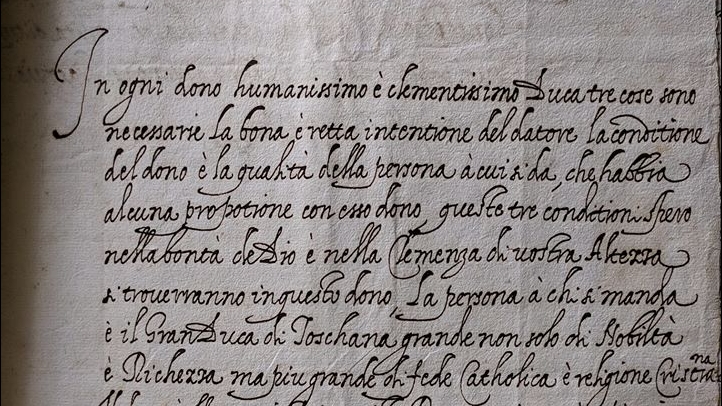 In ogni dono humanissimo è clementissimo Duca tre cose sono
necessarie la bona è retta intentione del datore la conditione
del dono è la qualità della persona à cui si da, che habbia
alcuna propotione con esso dono, queste tre conditioni spero
nella bontà de Dio è nella Clemenza di vostra Altezza
si troverranno in questo dono, La persona à chi si manda
è il Gran Duca di Toschana grande non solo di Nobiltà
è Richezza ma piu grande di fede Catholica è religione Cristiana